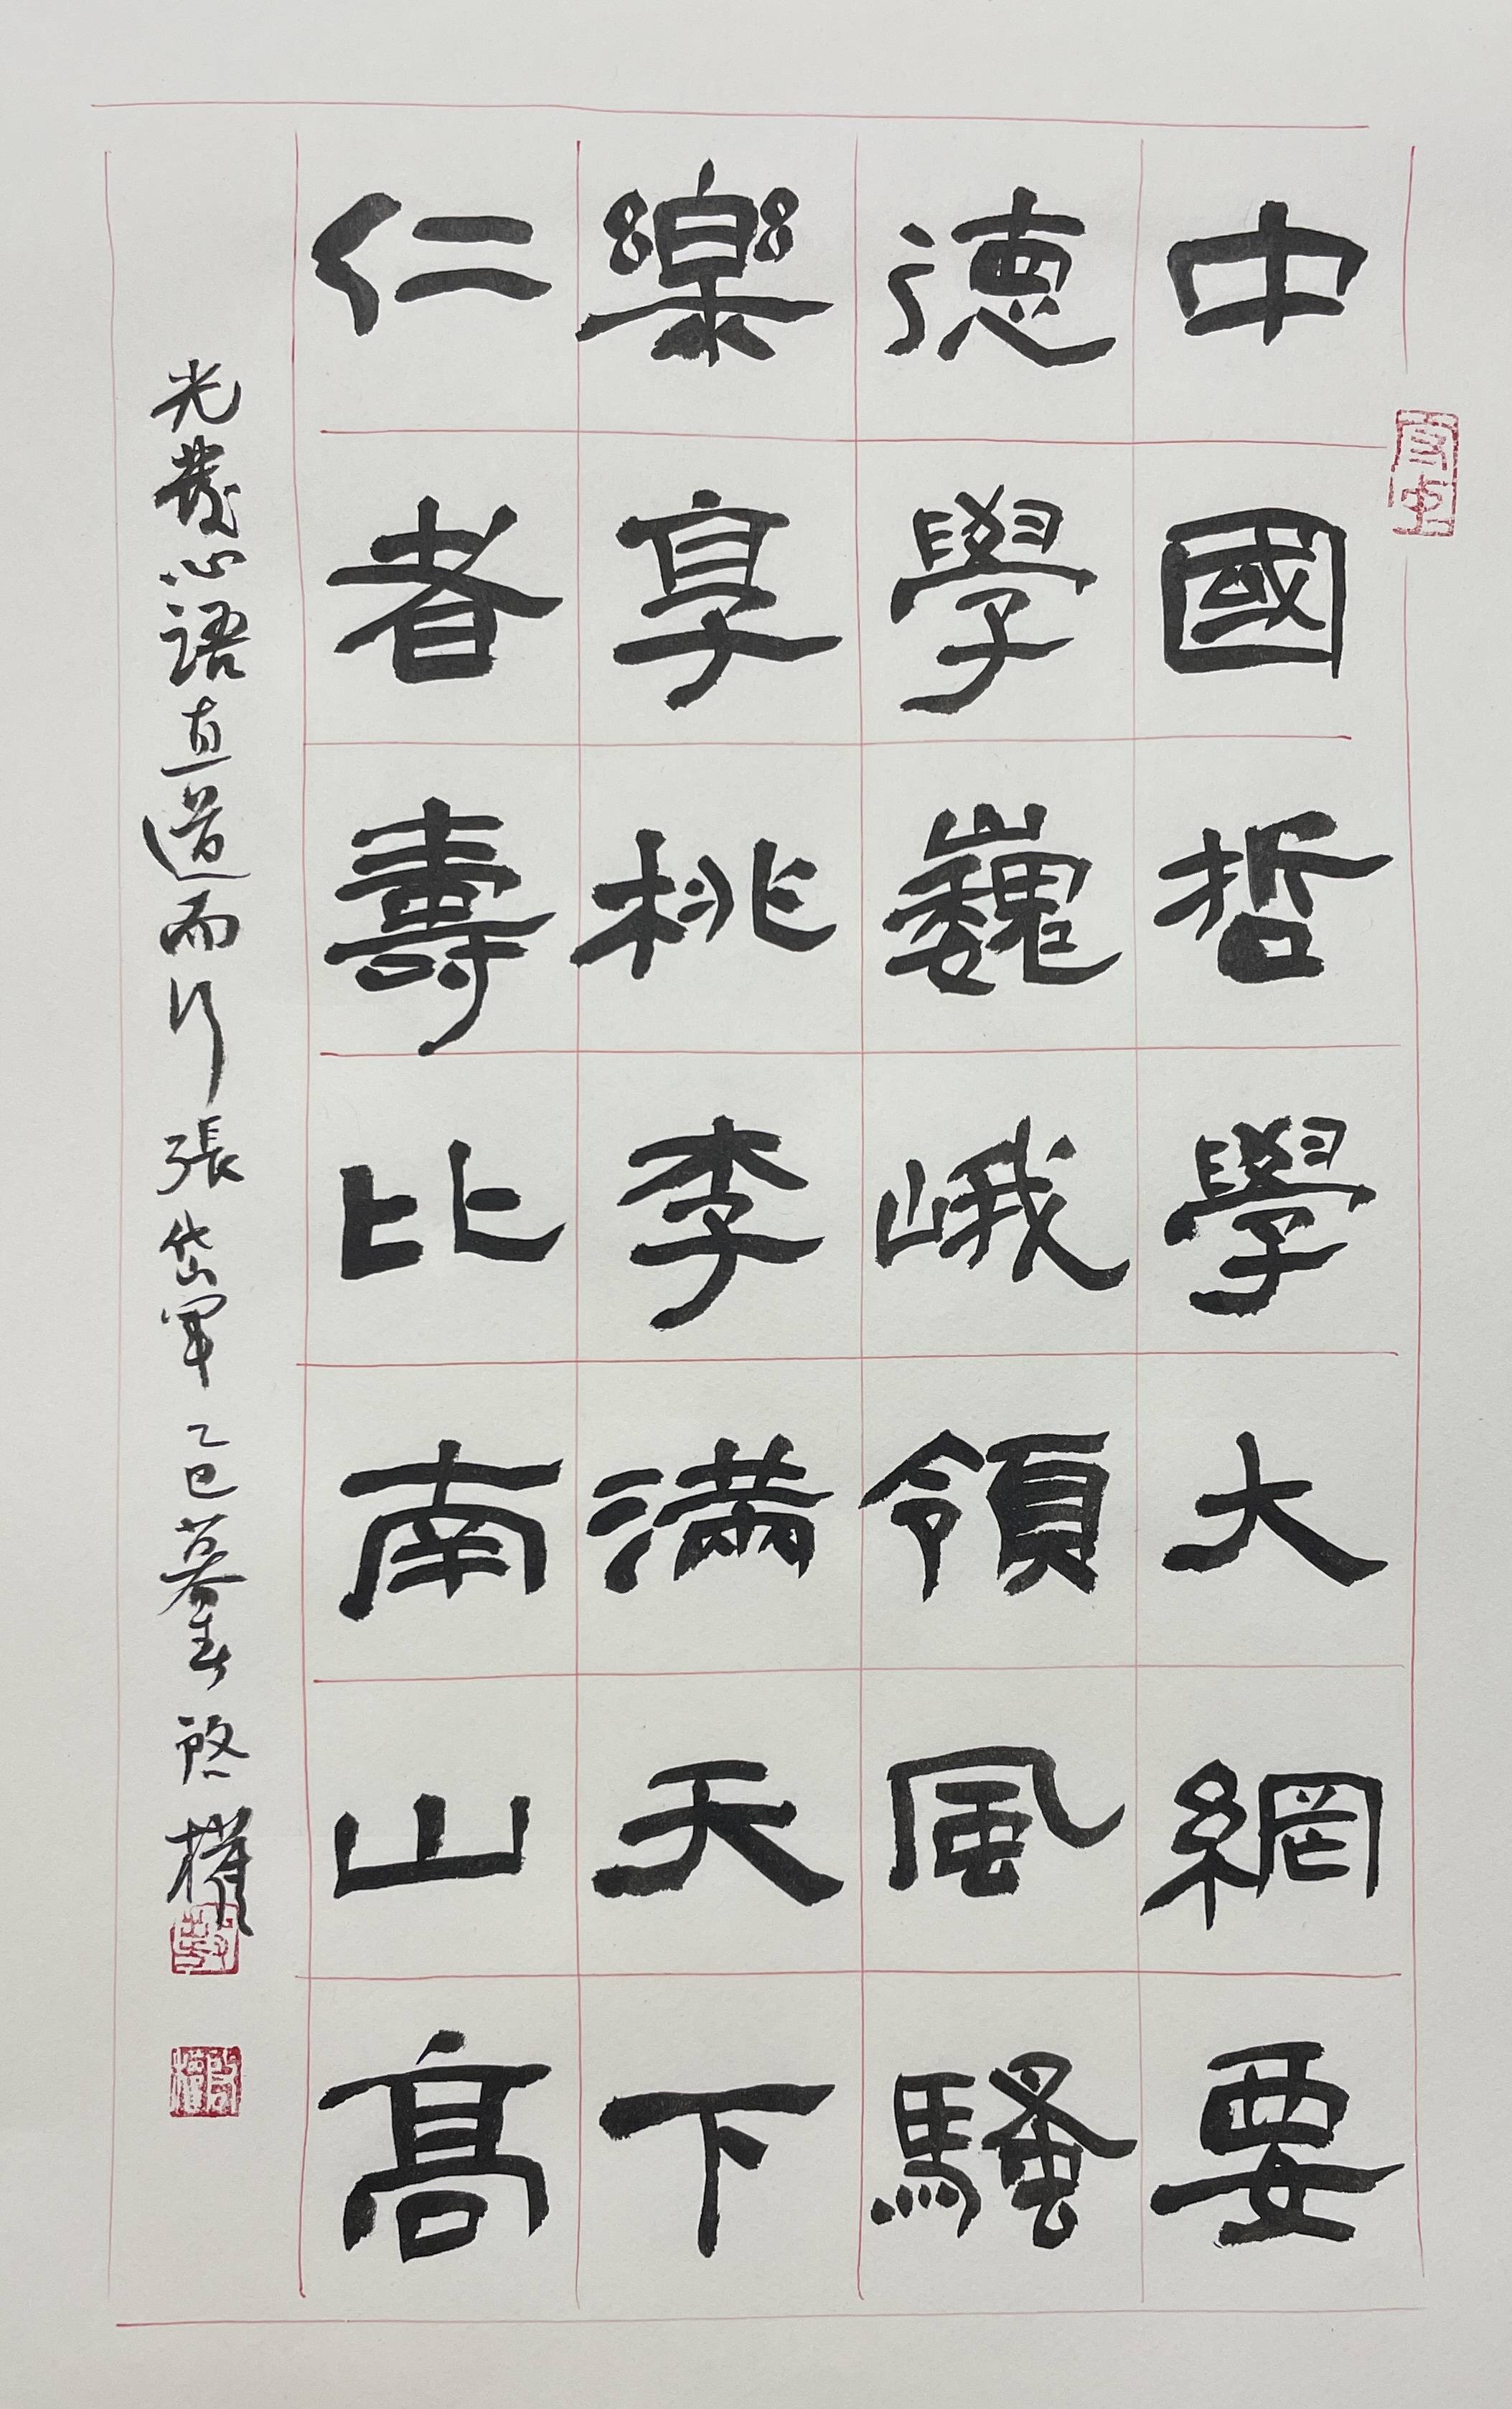 中國哲學大網要
德學巍峨領風騷
樂享桃李滿天下
仁者壽比南山高
光發心語直道而行張岱軍乙巳暮春啓權